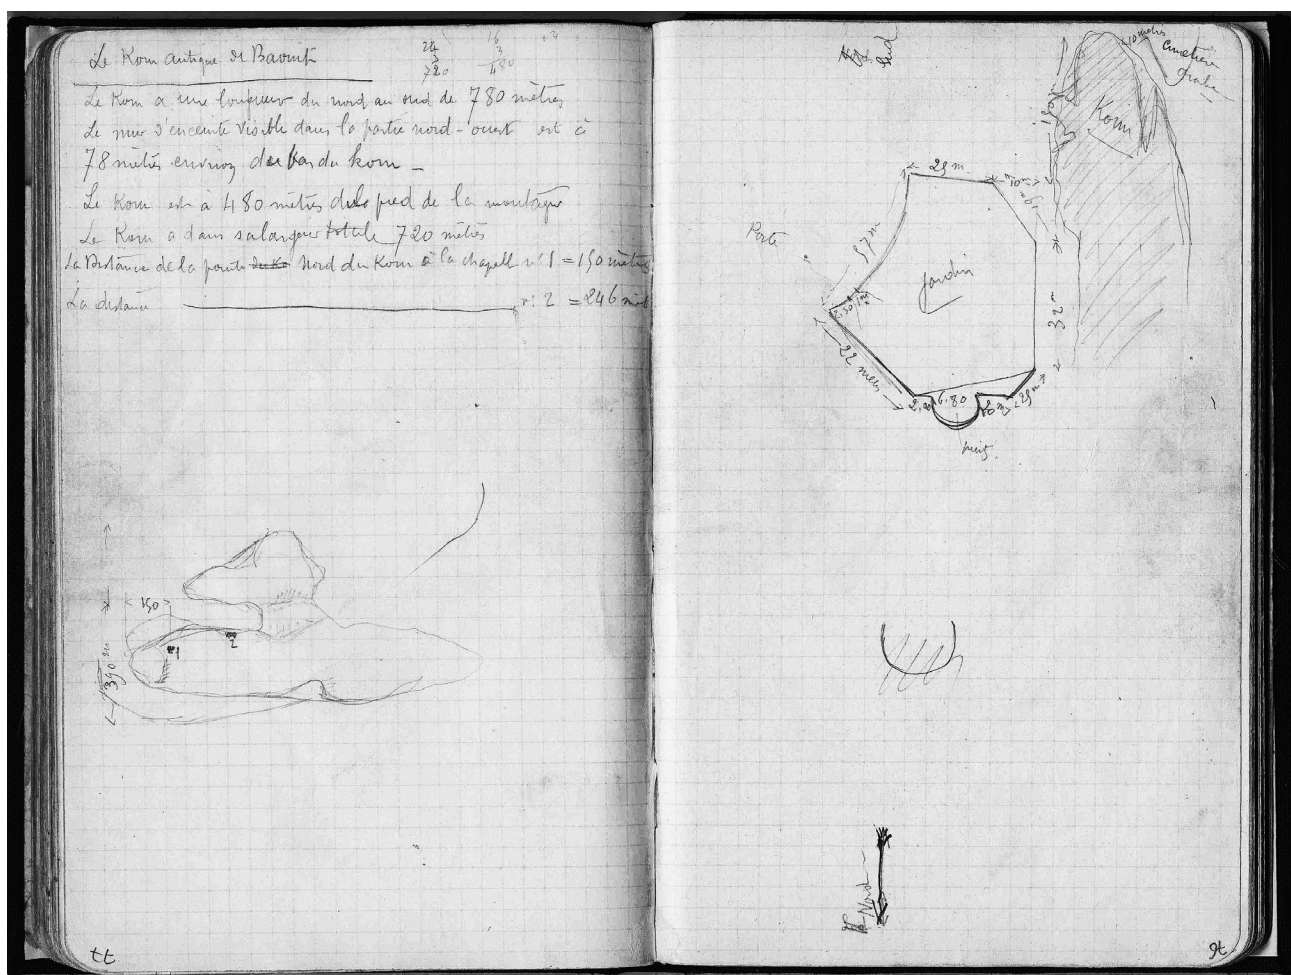 Le Kom antique de Baouit
24
3
720
16
3
480
Le Kom a une longueur du nord au sud de 780 mètres
Le mur d'enceinte visible dans la partie nord-ouest est à
78 mètres environ du bas du kom
Le Kom est à 480 mètres du pied de la montagne
Le Kom a dans sa largeur totale 720 mètres
La Distance de la pointe Nord du Kom à la chapelle n: 1 = 150 mètres
La distance n: 2 = 246
150
1
2
390 m
Sud
210 mètres
Cimetière
Arabe
Kom
29 m.
10 m
Porte
57 m
Jardin
2,50
1m
32 m
22 mètres
6.80
29 m
puits.
Nord